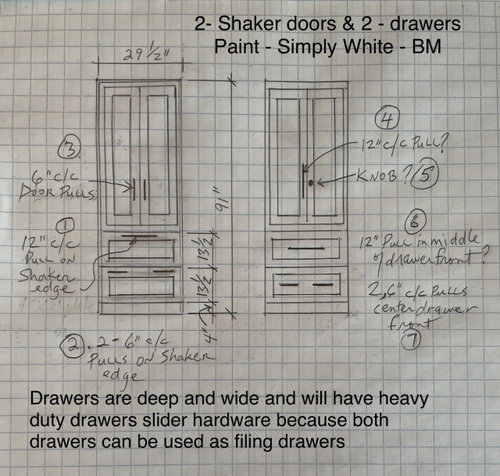 2- Shaker doors & 2 - drawers
Paint - Simply White - BM
29 1/2"
③
6" c/c
DOOR PULLS
①
12" c/c
Pull on
Shaker
edge
91"
13 1/2
13 1/2
4"
② . 2 - 6" c/c
Pulls on Shaker
edge
④
12" c/c Pull?
KNOB? ⑤
⑥
12" Pull in middle
of drawer front?
2, 6" c/c Pulls
center drawer
front
⑦
Drawers are deep and wide and will have heavy
duty drawers slider hardware because both
drawers can be used as filing drawers